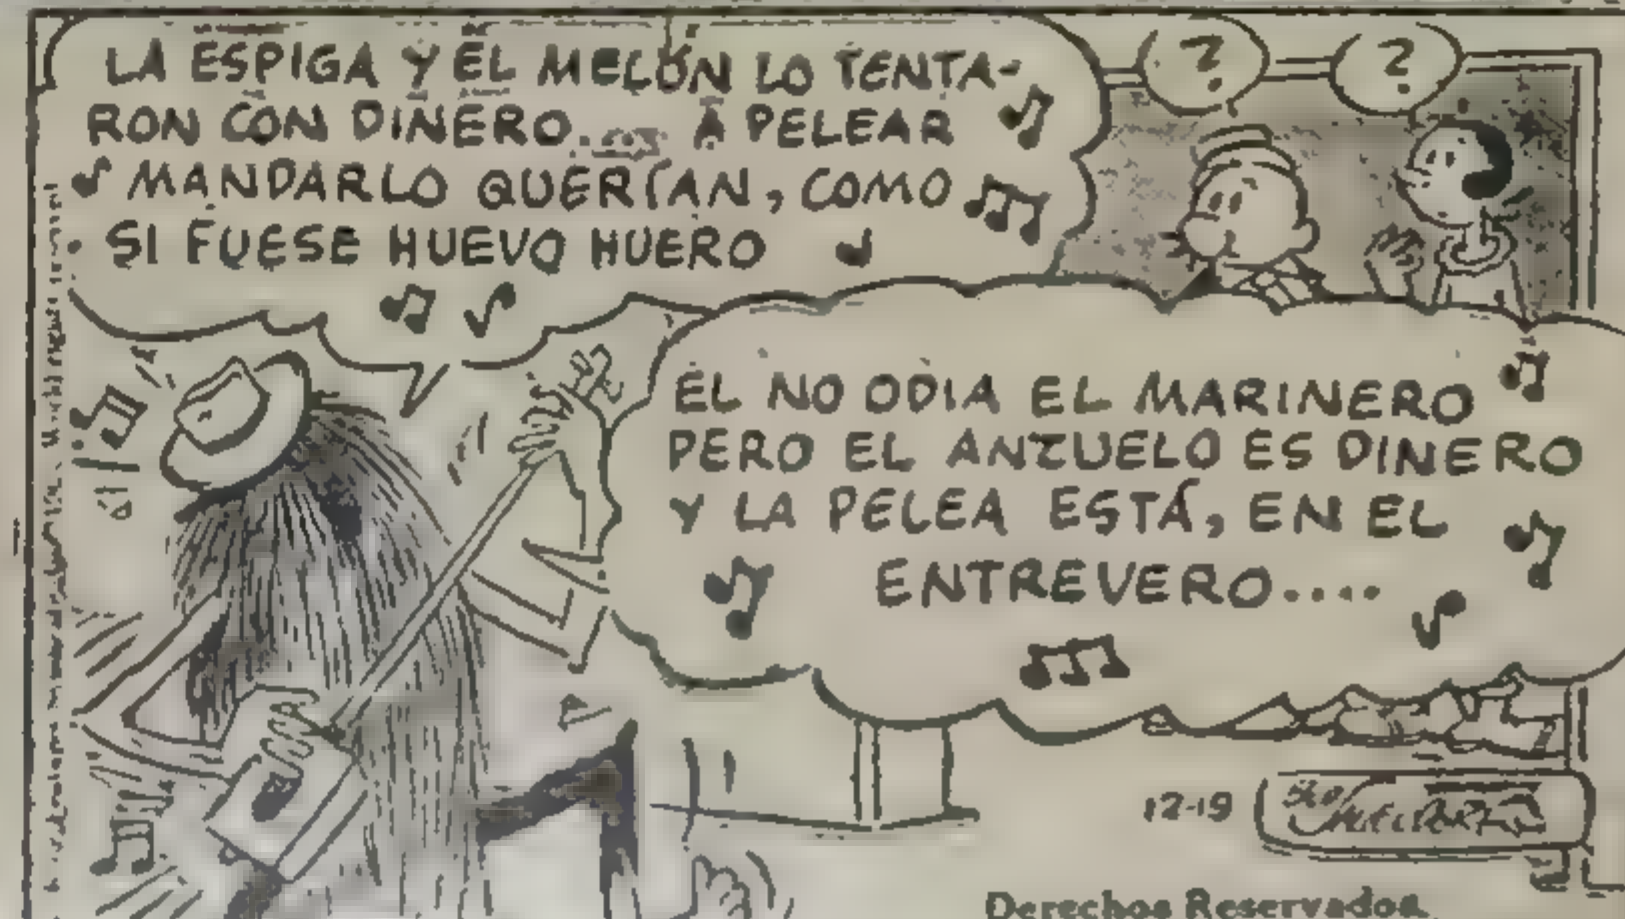 LA ESPIGA Y EL MELÓN LO TENTA-
RON CON DINERO... A PELEAR
MANDARLO QUERÍAN, COMO
SI FUESE HUEVO HUERO
?
?
EL NO ODIA EL MARINERO
PERO EL ANZUELO ES DINERO
Y LA PELEA ESTÁ, EN EL
ENTREVERO....
12-19
Derechos Reservados